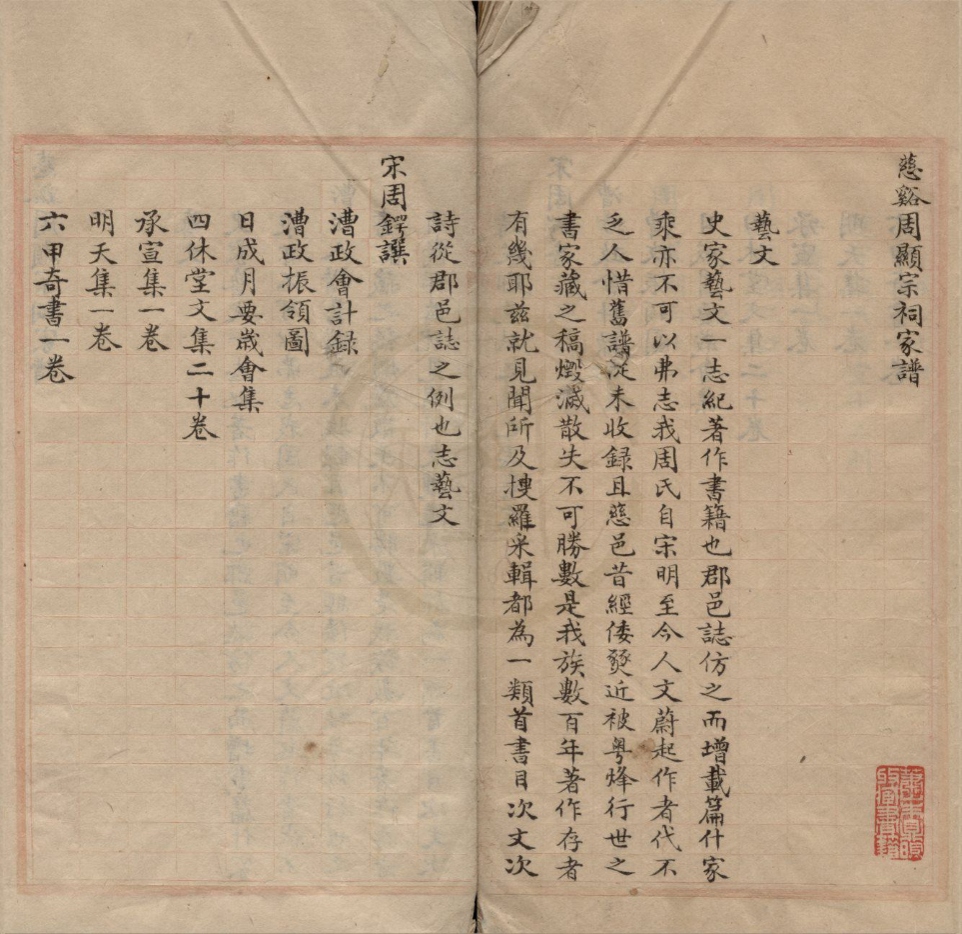 慈谿周顯宗祠家譜
藝文
史家藝文一志紀著作書籍也郡邑誌仿之而增載篇什家
乘亦不可以弗志我周氏自宋明至今人文蔚起作者代不
乏人惜舊譜從未收録且慈邑昔經倭燹近被粵烽行世之
書家藏之稿燬滅散失不可勝數是我族數百年著作存者
有幾耶茲就見聞所及捜羅采輯都為一類首書目次文次
詩從郡邑誌之例也志藝文
宋周鍔譔
漕政會計録
漕政振領圖
日成月要歲會集
四休堂文集二十卷
承宣集一卷
明天集一卷
六甲奇書一卷